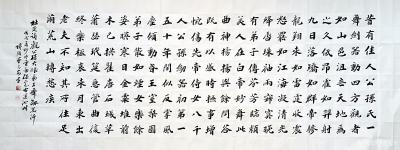 昔有佳人公孫氏一
舞劍器動四方觀者
如山色沮喪天地為
之久低昂㸌如羿射
九日落矯如群帝驂
龍翔來如雷霆收震
怒罷如江海凝清光
絳唇珠袖兩寂寞晚
有弟子傳芬芳臨潁
美人在白帝妙舞此
曲神揚揚與余問答
既有以感時撫事增
惋傷先帝侍女八千
人公孫劍器初第一
五十年間似反掌風
塵傾動昏王室梨園
弟子散如煙女樂餘
姿映寒日金粟堆前
木已拱瞿唐石城草
蕭瑟玳筵急管曲復
終樂極哀來月東出
老夫不知其所往足
繭荒山轉愁疾
杜甫詩觀公孫大娘弟子舞劍器行